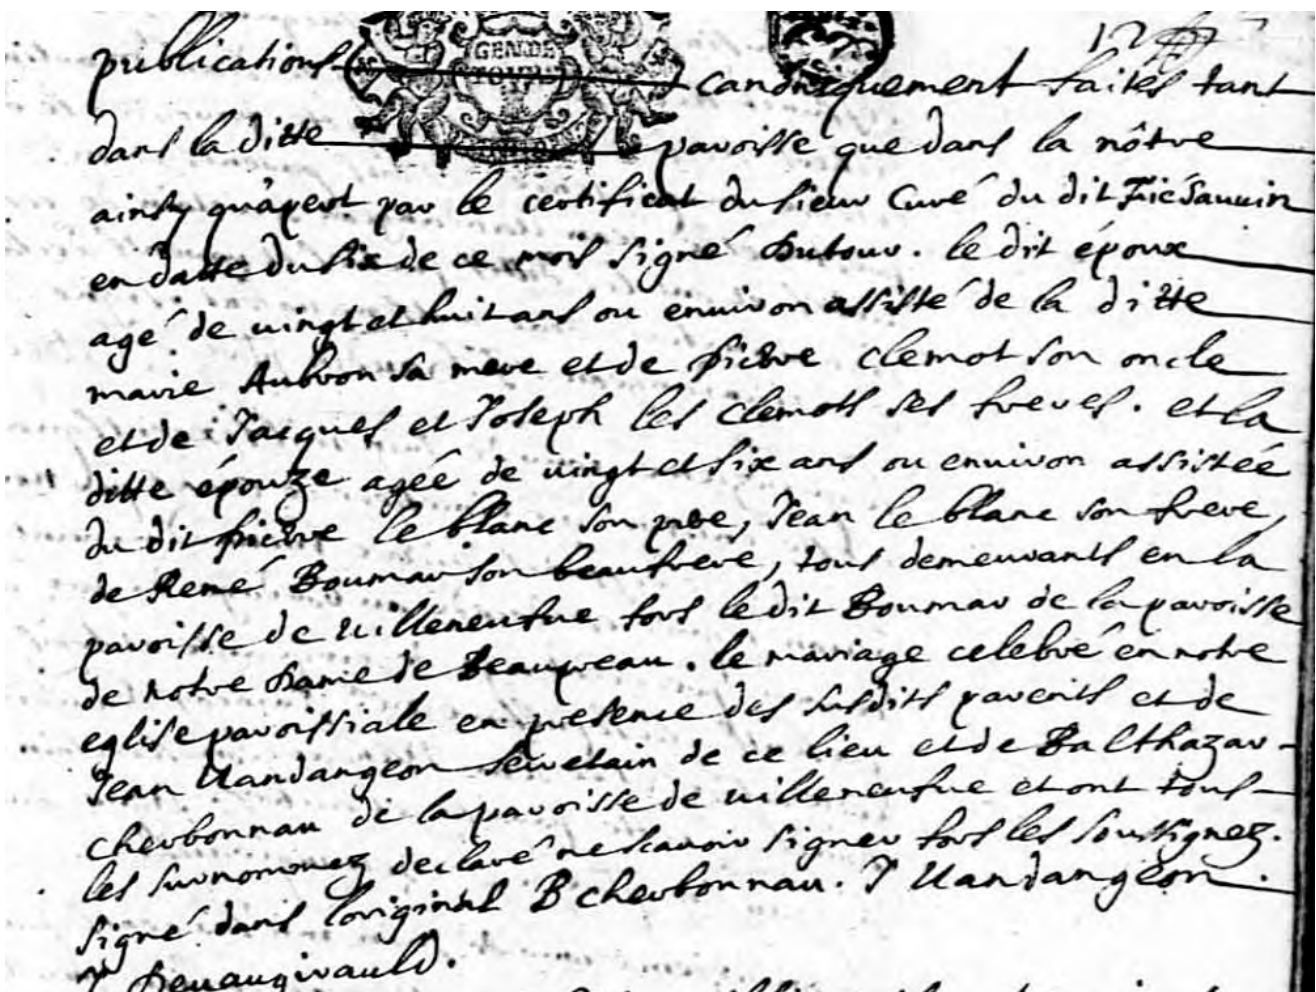 publications canoniquement faites tant
dans la ditte paroisse que dans la nôtre
ainsy qu'apert par le certificat du sieur Curé du dit Fiéfsauvin
en datte du six de ce mois signé Dutour. le dit époux
agé de vingt et huit ans ou environ assisté de la ditte
marie Aubron sa mere et de pierre clemot son oncle
et de Jacques et Joseph les clemots ses freres. et la
ditte épouze agée de vingt et six ans ou environ assistée
du dit pierre le blanc son pere, Jean le blanc son frere,
de René Boumar son beaufrere, tous demeurants en la
paroisse de villeneufve fors le dit Boumar de la paroisse
de notre Dame de Beaupreau. le mariage celebré en notre
eglise paroissiale en presence des susdits parents et de
Jean Vandangeon secretain de ce lieu et de Balthazar
cherbonnau de la paroisse de villeneufve et ont tous
les surnommez declaré ne scavoir signer fors les soussignez.
signé dans l'original B cherbonnau. J Vandangeon.